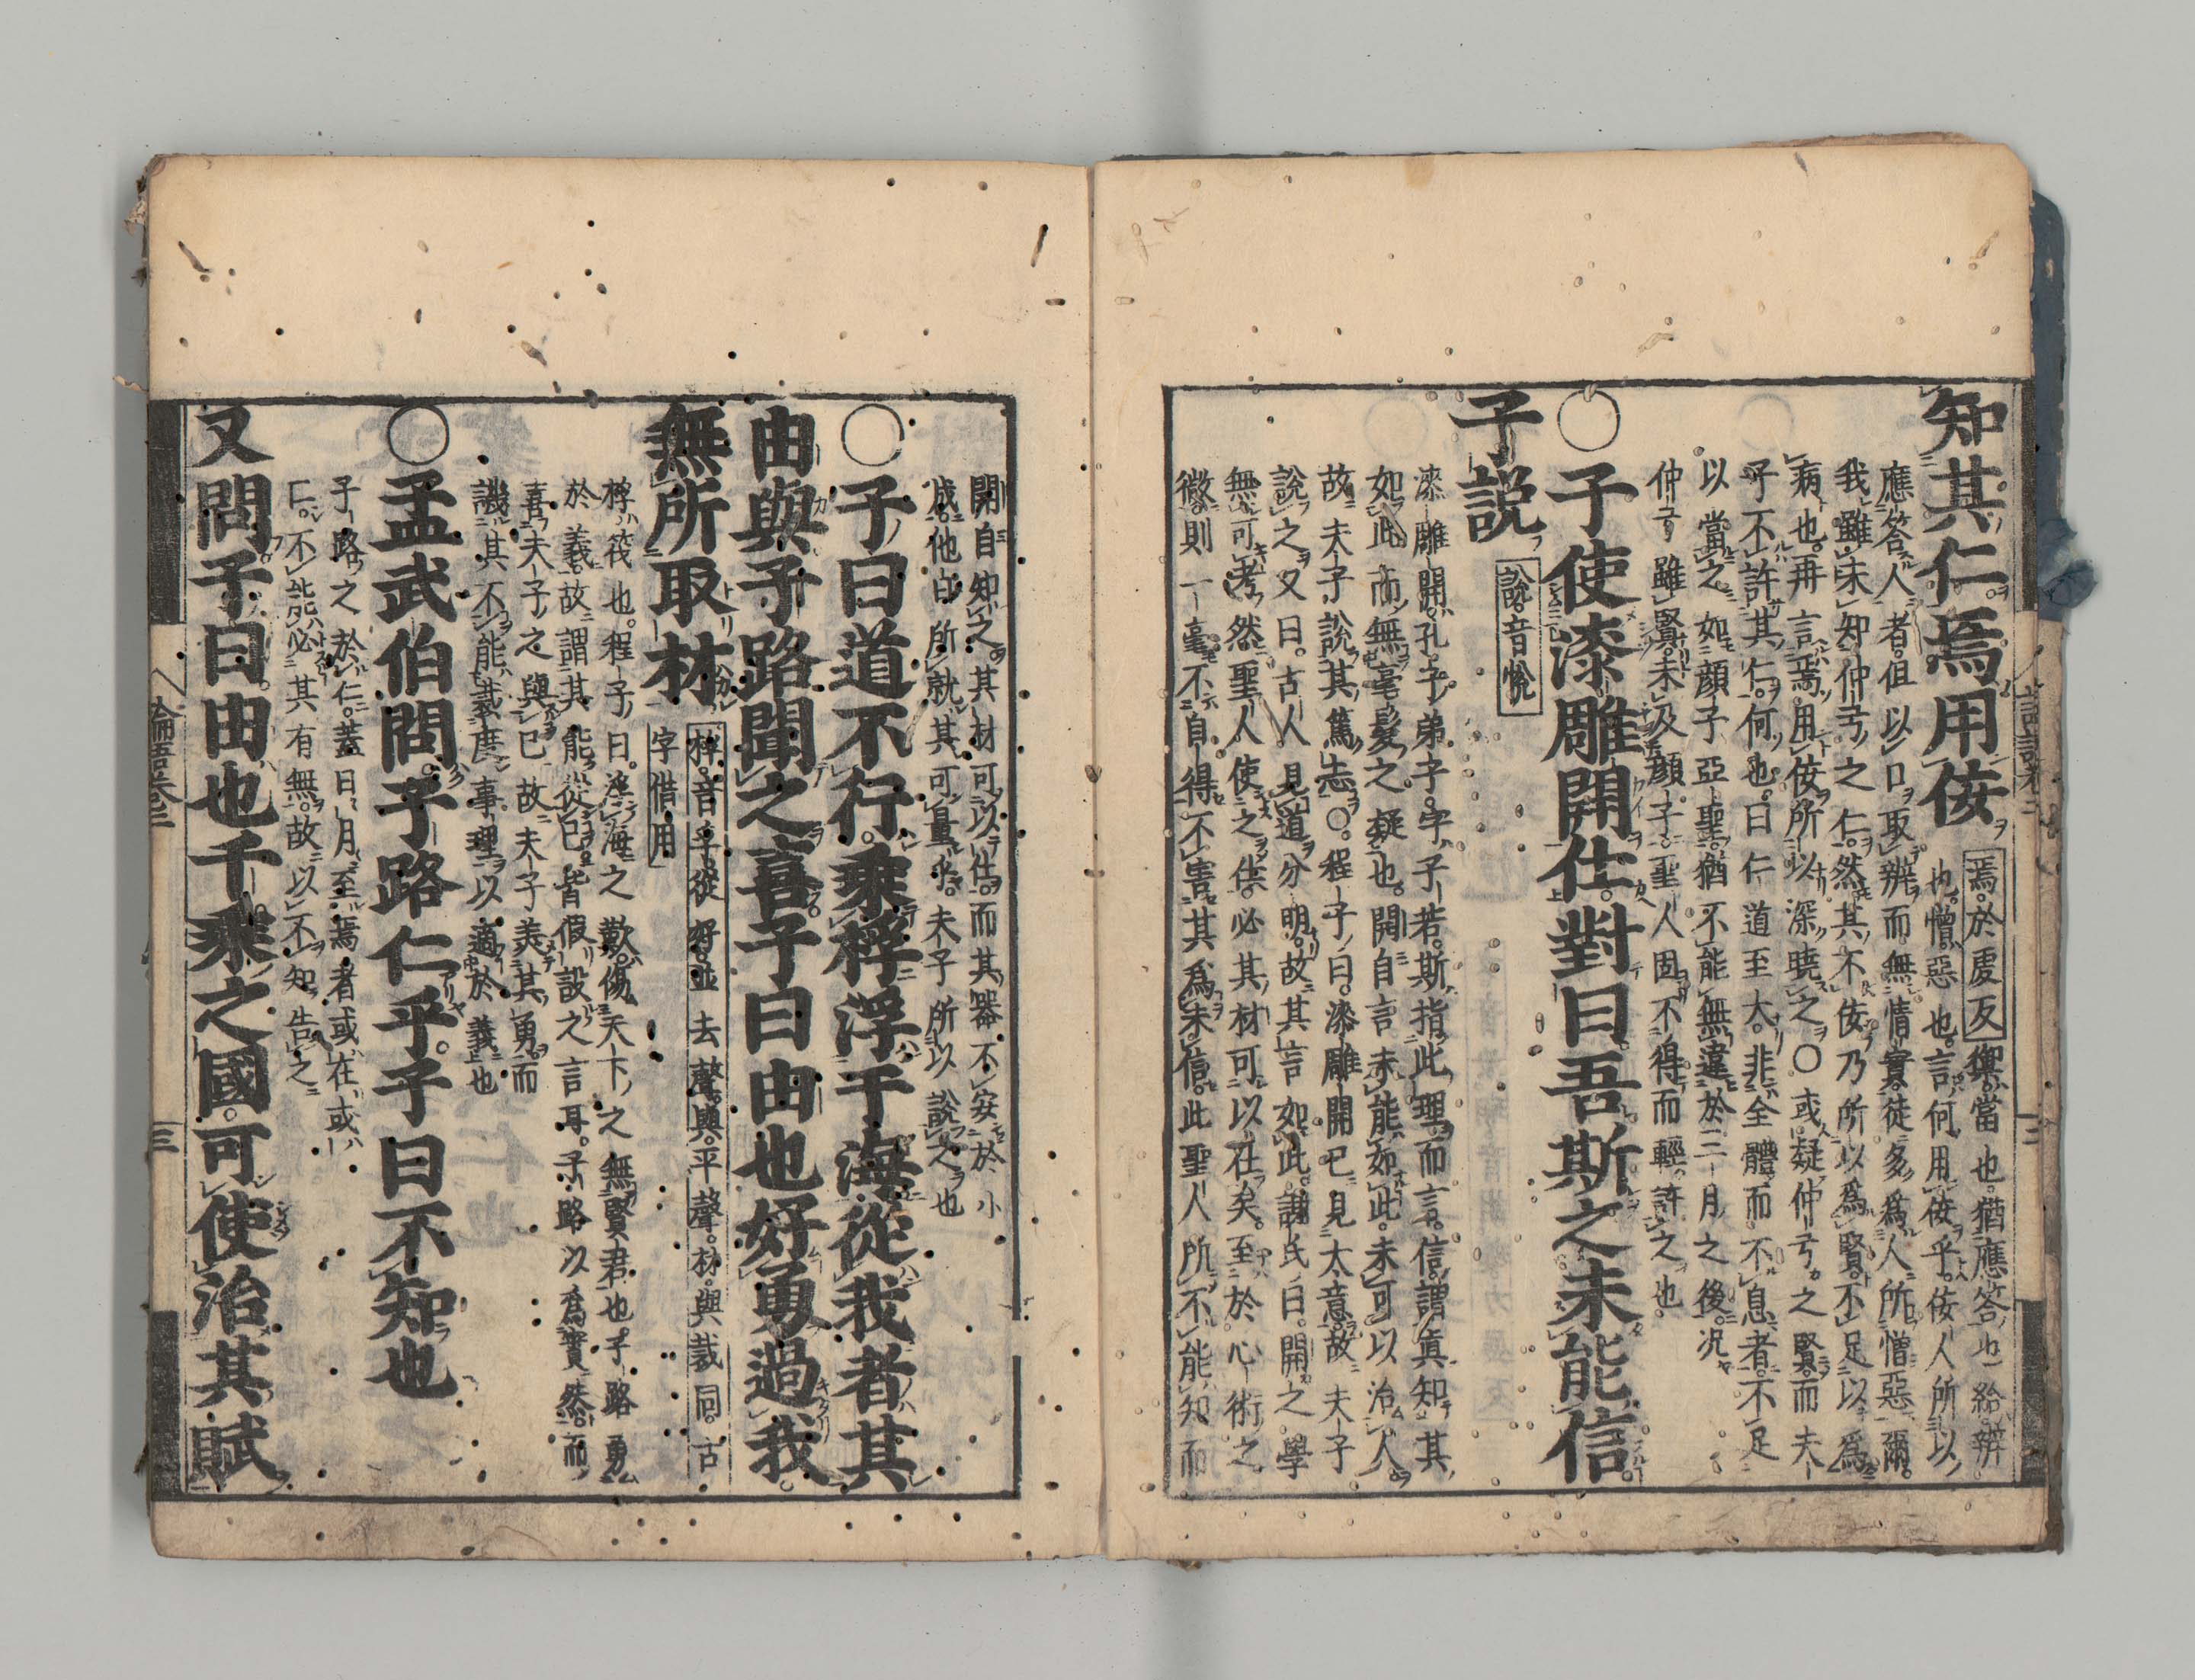 知其仁焉用佞
焉於虔反
禦當也猶應答也給辨
也憎惡也言何用佞乎佞人所以
應答人者但以口取辨而無情實徒多爲人所憎惡爾
我雖未知仲弓之仁然其不佞乃所以爲賢不足以爲
病也再言焉用佞所以深曉之○或疑仲弓之賢而夫
子不許其仁何也曰仁道至大非全體而不息者不足
以當之如顔子亞聖猶不能無違於三月之後况
仲弓雖賢未及顔子聖人固不得而輕許之也
○子使漆雕開仕對曰吾斯之未能信
子説
說音悅
漆雕開孔子弟子字子若斯指此理而言信謂眞知其
如此而無毫髮之疑也開自言未能如此未可以治人
故夫子說其篤志○程子曰漆雕開已見大意故夫子
說之又曰古人見道分明故其言如此謝氏曰開之學
無可考然聖人使之仕必其材可以仕矣至於心術之
微則一毫不自得不害其爲未信此聖人所不能知而
開自知之其材可以仕而其器不安於小
成他日所就其可量乎夫子所以說之也
○子曰道不行乘桴浮于海從我者其
由與子路聞之喜子曰由也好勇過我
無所取材
桴音孚從好並去聲與平聲材與裁同古
字借用
桴筏也程子曰浮海之歎傷天下之無賢君也子路勇
於義故謂其能從已皆假設之言耳子路以爲實然而
喜夫子之與已故夫子美其勇而
譏其不能裁度事理以適於義也
○孟武伯問子路仁乎子曰不知也
子路之於仁蓋日月至焉者或在或
亡不能必其有無故以不知告之
又問子曰由也千乘之國可使治其賦
論語卷三
三